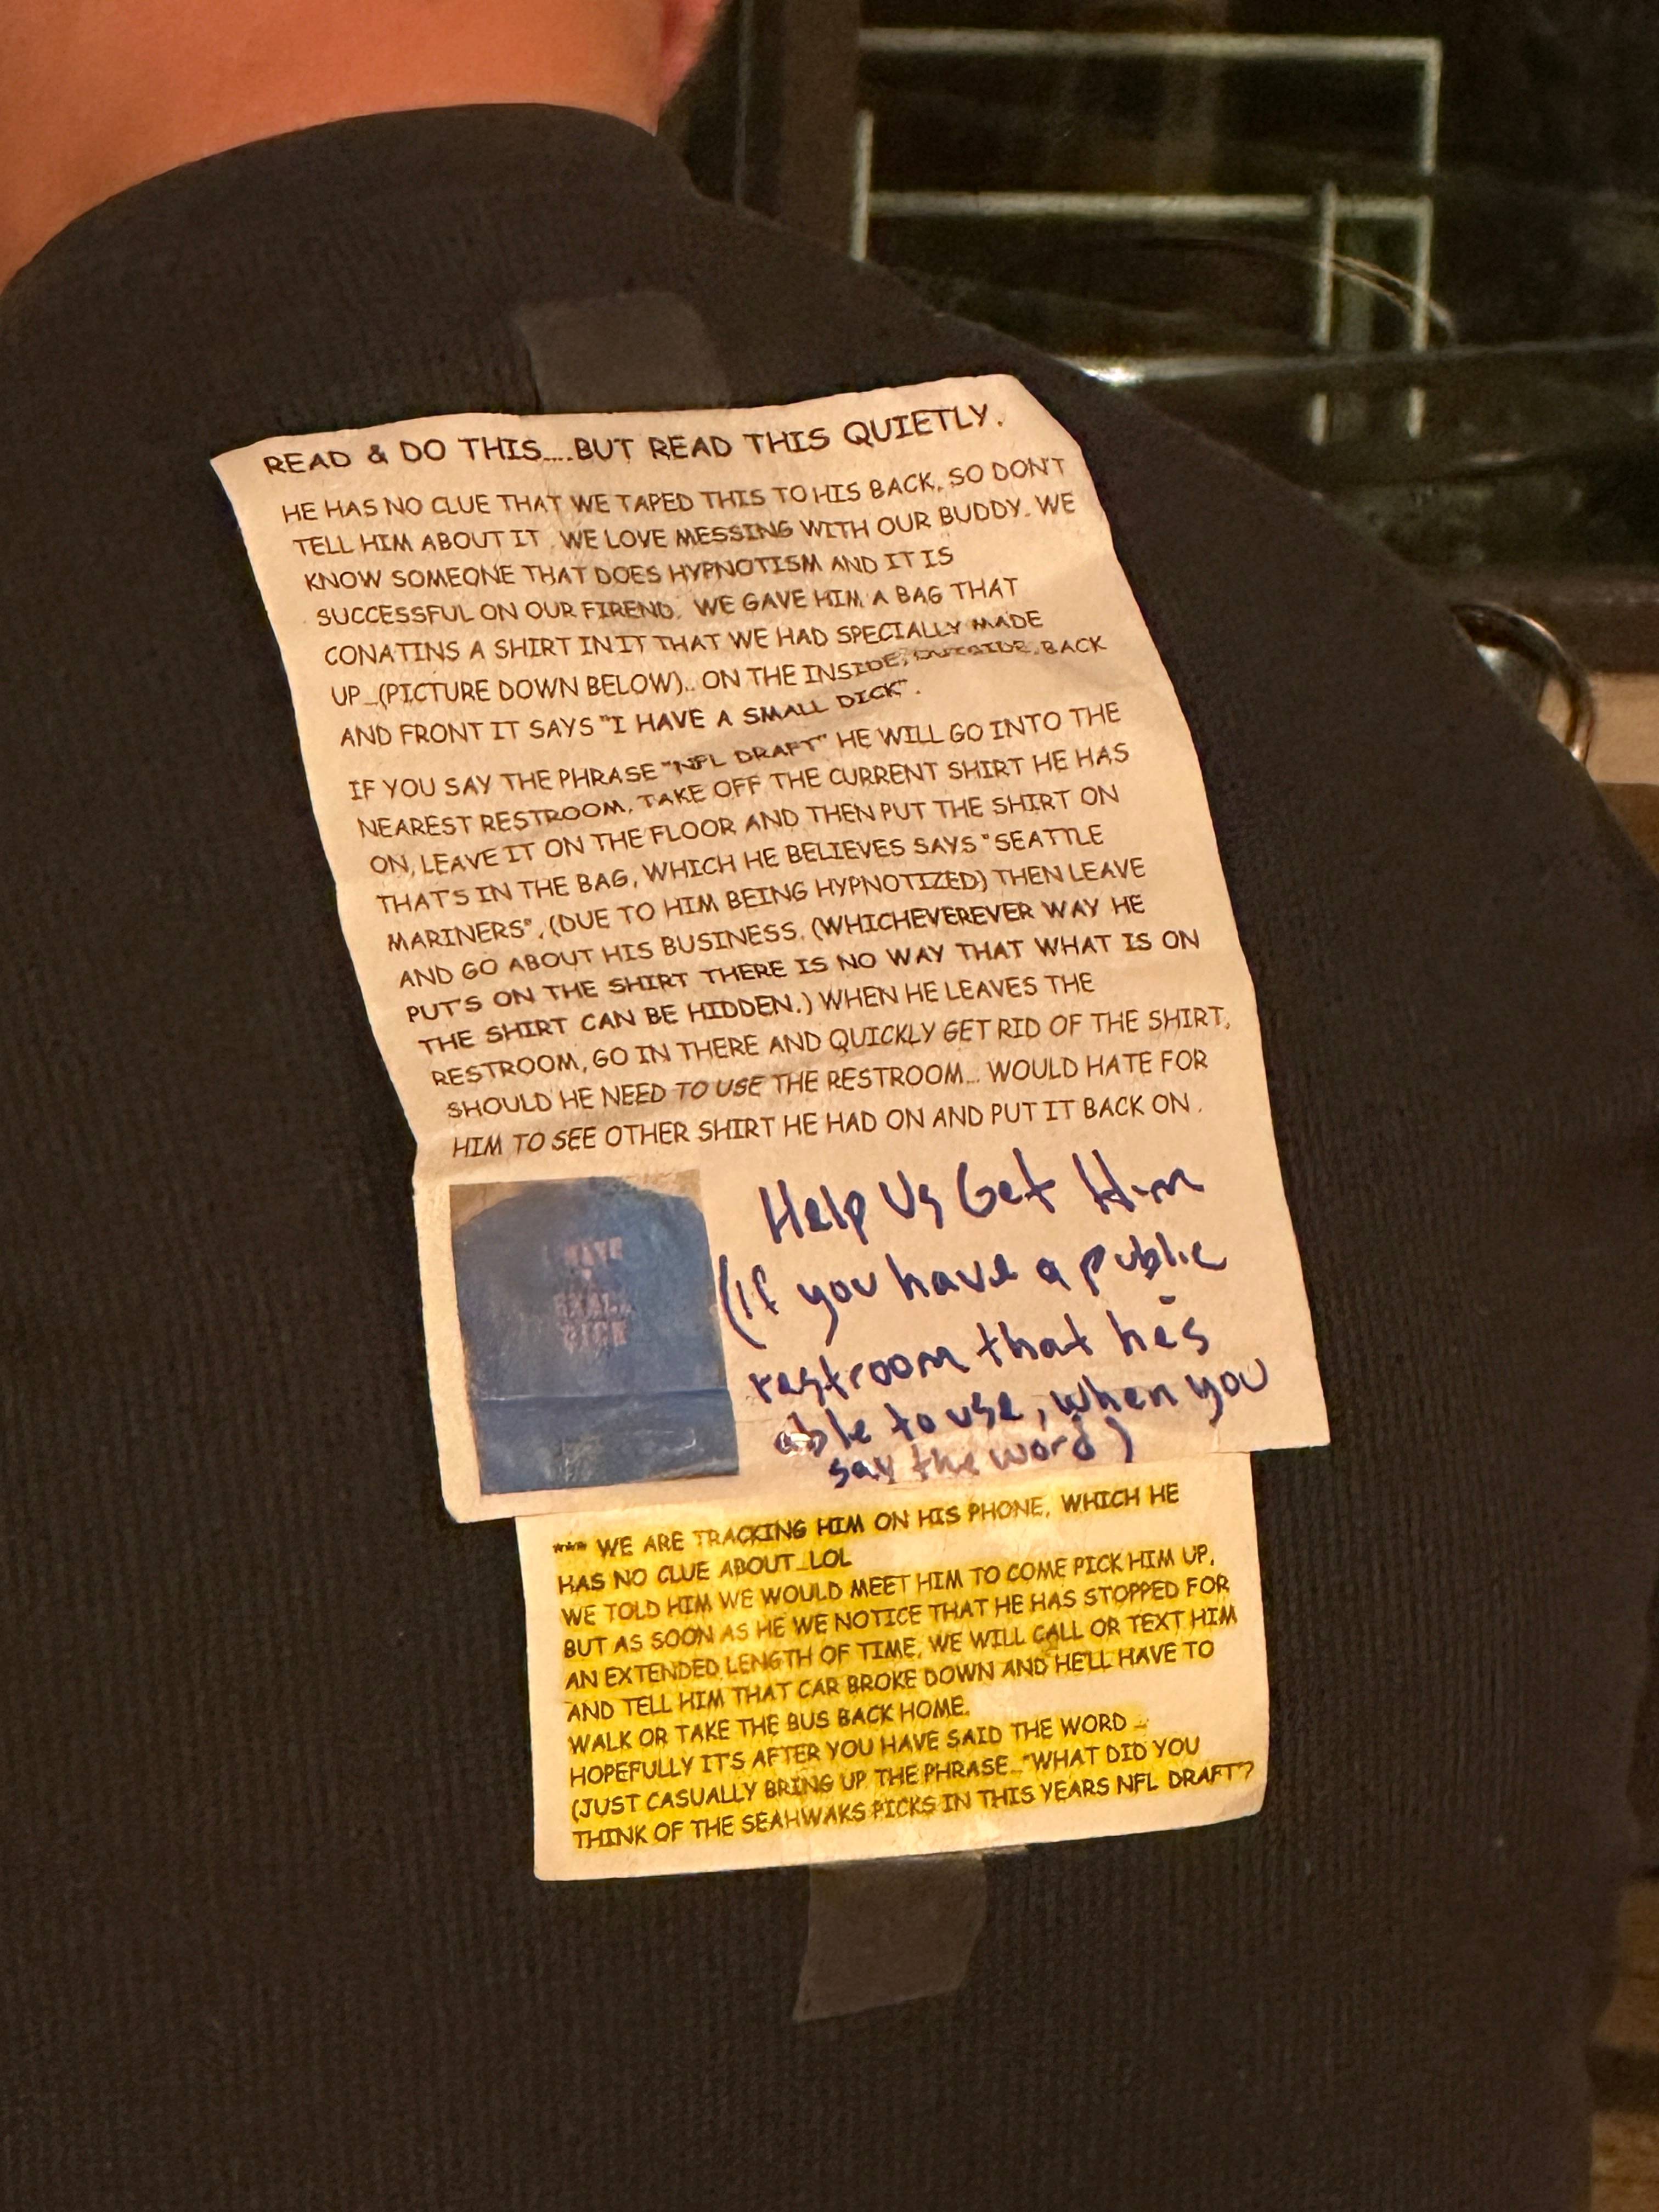 READ & DO THIS....BUT READ THIS QUIETLY.
HE HAS NO CLUE THAT WE TAPED THIS TO HIS BACK, SO DON'T
TELL HIM ABOUT IT. WE LOVE MESSING WITH OUR BUDDY. WE
KNOW SOMEONE THAT DOES HYPNOTISM AND IT IS
SUCCESSFUL ON OUR FIREND. WE GAVE HIM A BAG THAT
CONATINS A SHIRT IN IT THAT WE HAD SPECIALLY MADE
UP...(PICTURE DOWN BELOW).. ON THE INSIDE, OUTSIDE, BACK
AND FRONT IT SAYS "I HAVE A SMALL DICK".
IF YOU SAY THE PHRASE "NFL DRAFT" HE WILL GO INTO THE
NEAREST RESTROOM, TAKE OFF THE CURRENT SHIRT HE HAS
ON, LEAVE IT ON THE FLOOR AND THEN PUT THE SHIRT ON
THAT'S IN THE BAG, WHICH HE BELIEVES SAYS "SEATTLE
MARINERS", (DUE TO HIM BEING HYPNOTIZED) THEN LEAVE
AND GO ABOUT HIS BUSINESS. (WHICHEVEREVER WAY HE
PUT'S ON THE SHIRT THERE IS NO WAY THAT WHAT IS ON
THE SHIRT CAN BE HIDDEN.) WHEN HE LEAVES THE
RESTROOM, GO IN THERE AND QUICKLY GET RID OF THE SHIRT,
SHOULD HE NEED TO USE THE RESTROOM... WOULD HATE FOR
HIM TO SEE OTHER SHIRT HE HAD ON AND PUT IT BACK ON.
I HAVE
A
SMALL
DICK
Help Us Get Him
(If you have a public
restroom that he's
able to use, when you
say the word)
*** WE ARE TRACKING HIM ON HIS PHONE, WHICH HE
HAS NO CLUE ABOUT...LOL
WE TOLD HIM WE WOULD MEET HIM TO COME PICK HIM UP,
BUT AS SOON AS HE WE NOTICE THAT HE HAS STOPPED FOR
AN EXTENDED LENGTH OF TIME, WE WILL CALL OR TEXT HIM
AND TELL HIM THAT CAR BROKE DOWN AND HE'LL HAVE TO
WALK OR TAKE THE BUS BACK HOME.
HOPEFULLY IT'S AFTER YOU HAVE SAID THE WORD ...
(JUST CASUALLY BRING UP THE PHRASE..."WHAT DID YOU
THINK OF THE SEAHWAKS PICKS IN THIS YEARS NFL DRAFT"?